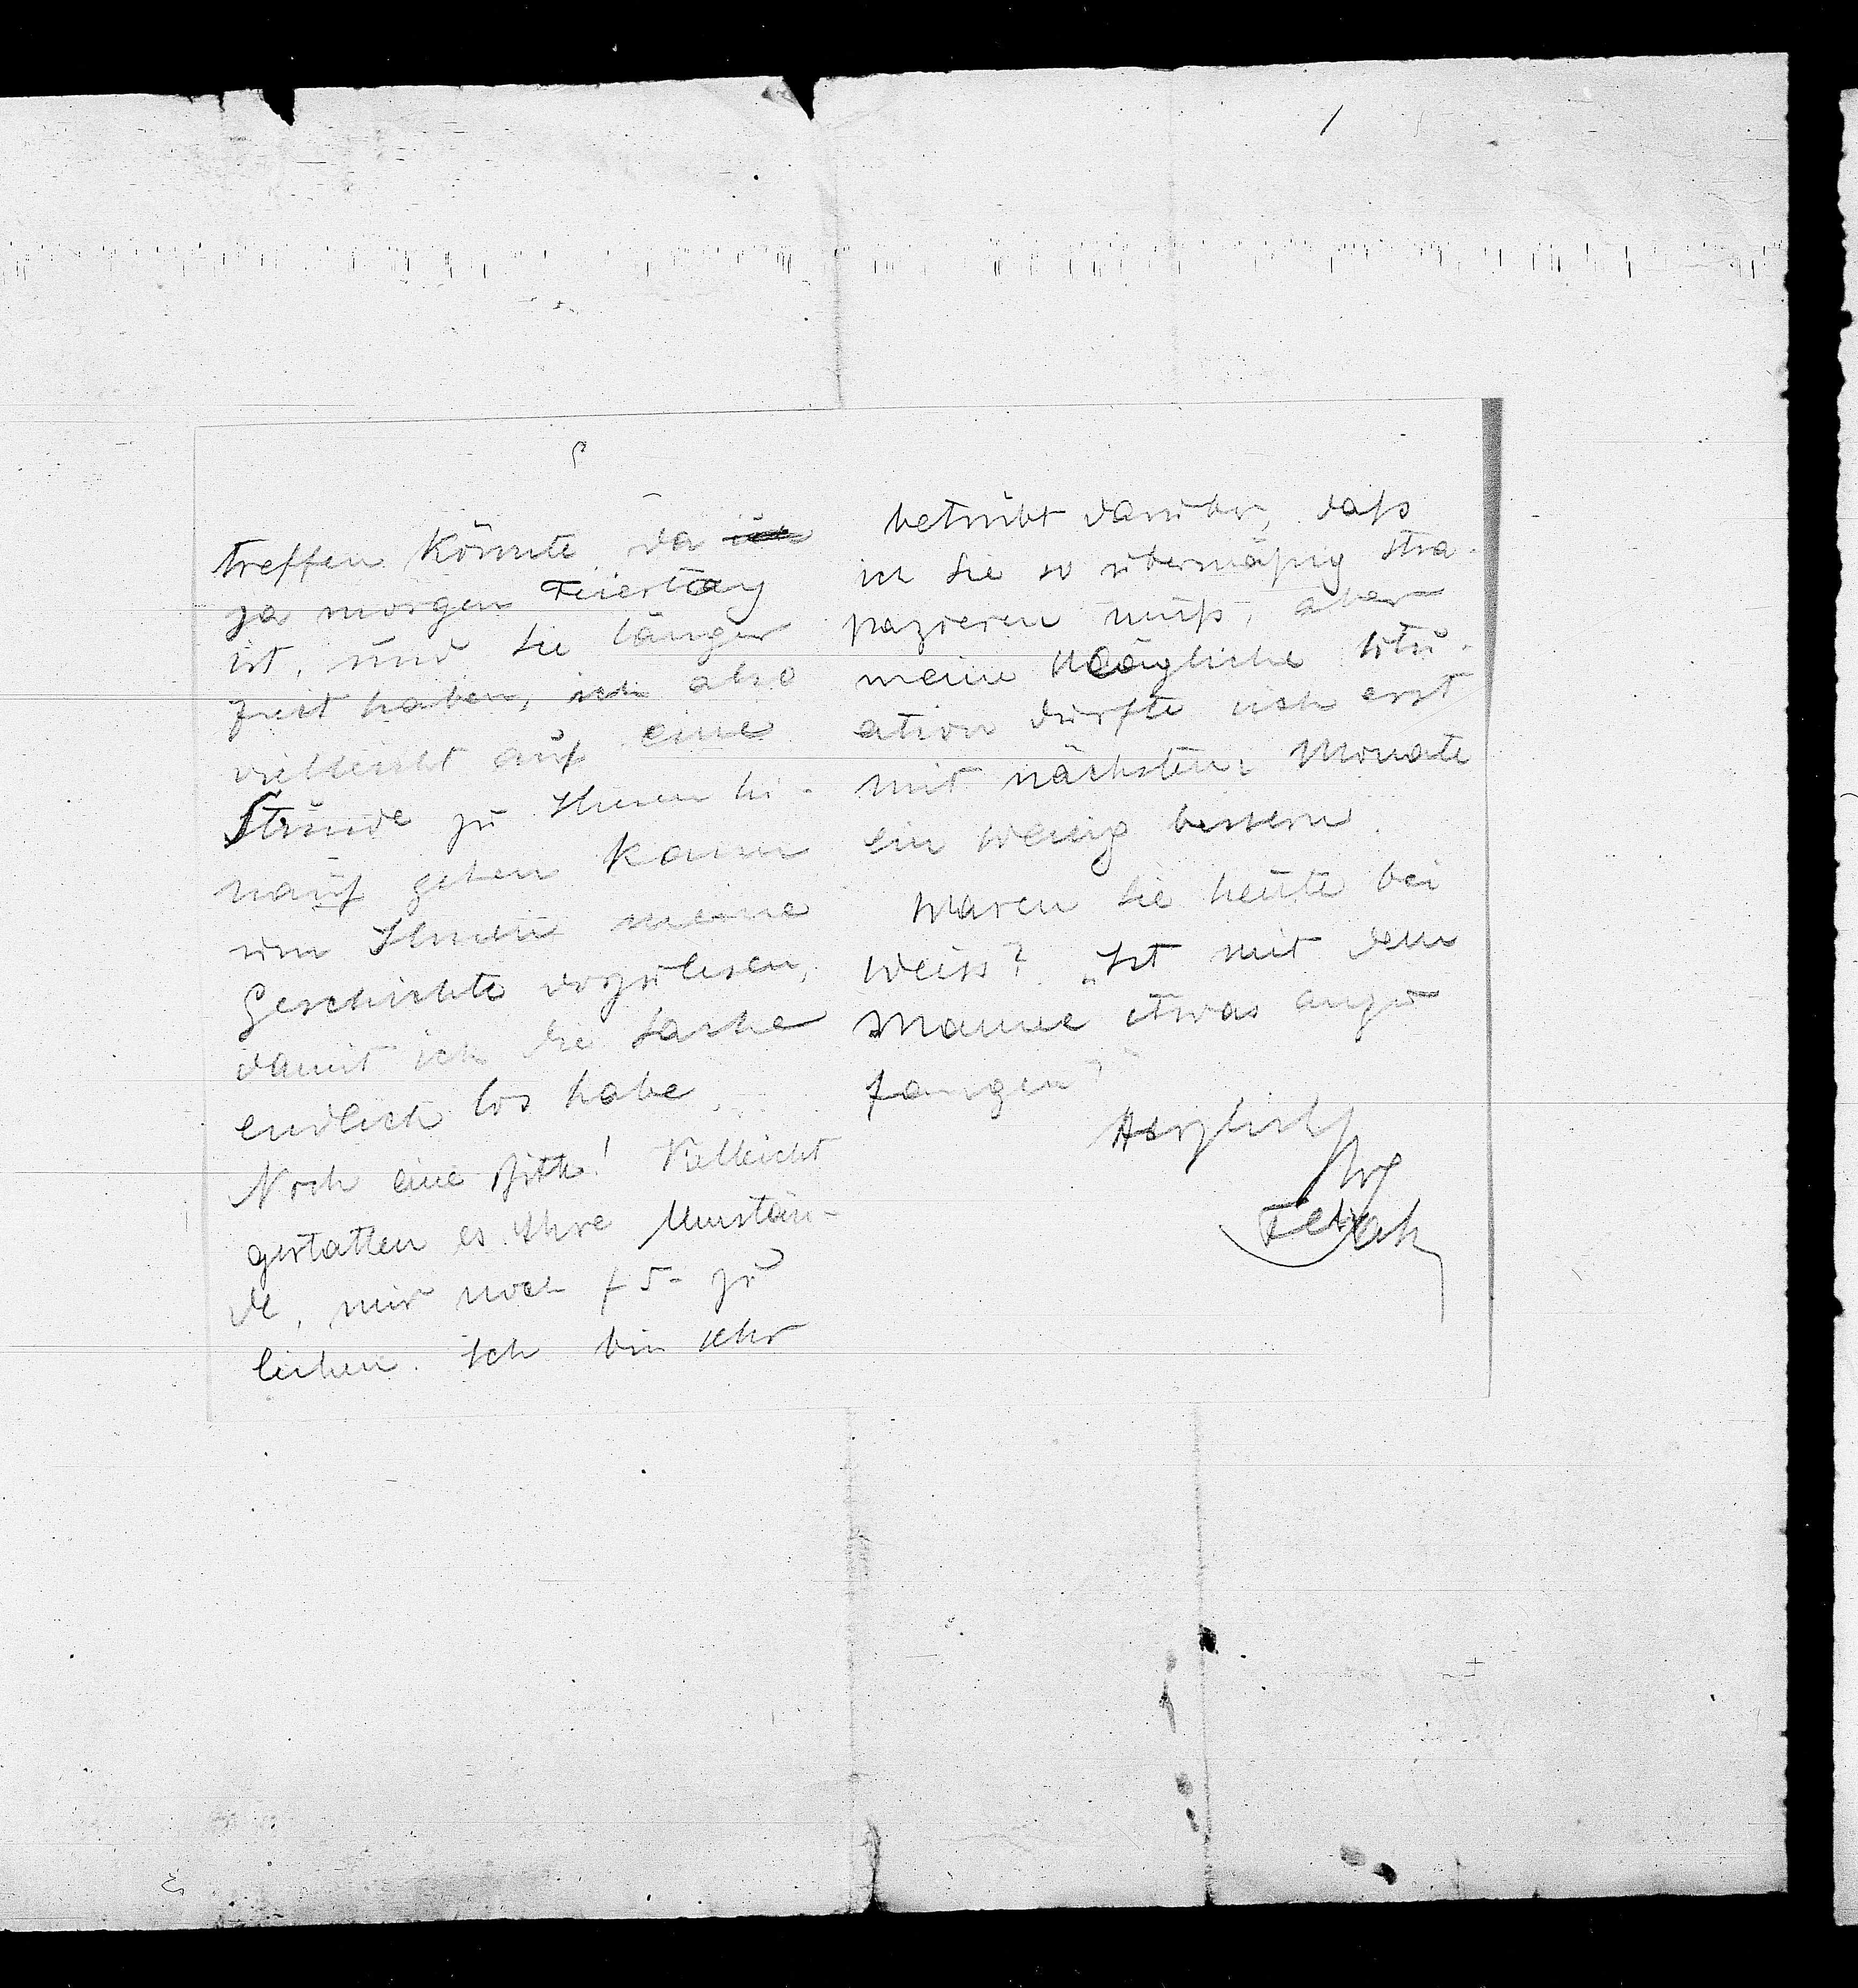 treffen könnte da ich
ja morgen Feiertag
ist, und Sie länger
Zeit haben, ich also
vielleicht auf eine
Stunde zu Ihnen hi-
nauf gehen kann
um Ihnen meine
Geschichte vorzulesen,
damit ich die Sache
endlich los habe.
Noch eine Bitte! Vielleicht
gestatten es Ihre Umstän-
de, mir noch f 5- zu
leihen. Ich bin sehr
betrübt darüber, daß
ich Sie so übermäßig stra-
pazieren muß, aber
meine klägliche Situ-
ation dürfte sich erst
mit nächsten Monate
ein wenig bessern.
Waren Sie heute bei
Weiss? „Ist mit dem
Manne etwas anzu
fangen?"
Herzlichst
Ihr